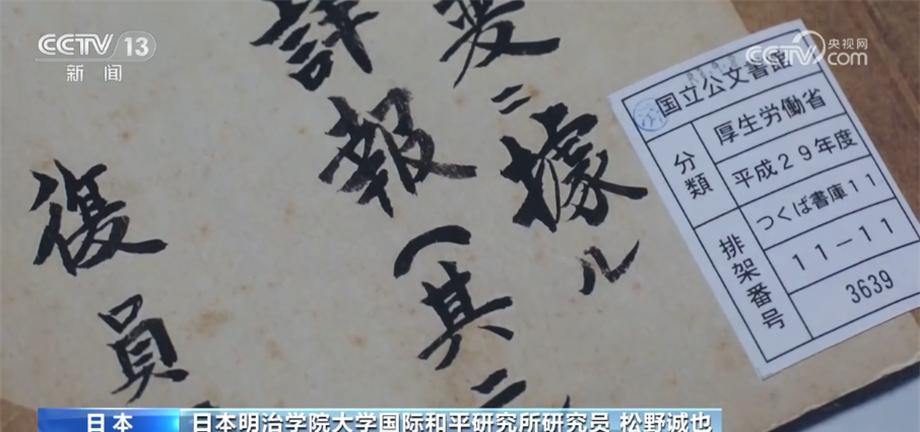 CCTV 13
新闻
CCTV 央视网
com
変ニ據ル
詳報(其二
復員
国立公文書館
分類
厚生労働省
平成29年度
つくば書庫11
排架番号
11-11
3639
日本
日本明治学院大学国际和平研究所研究员 松野诚也